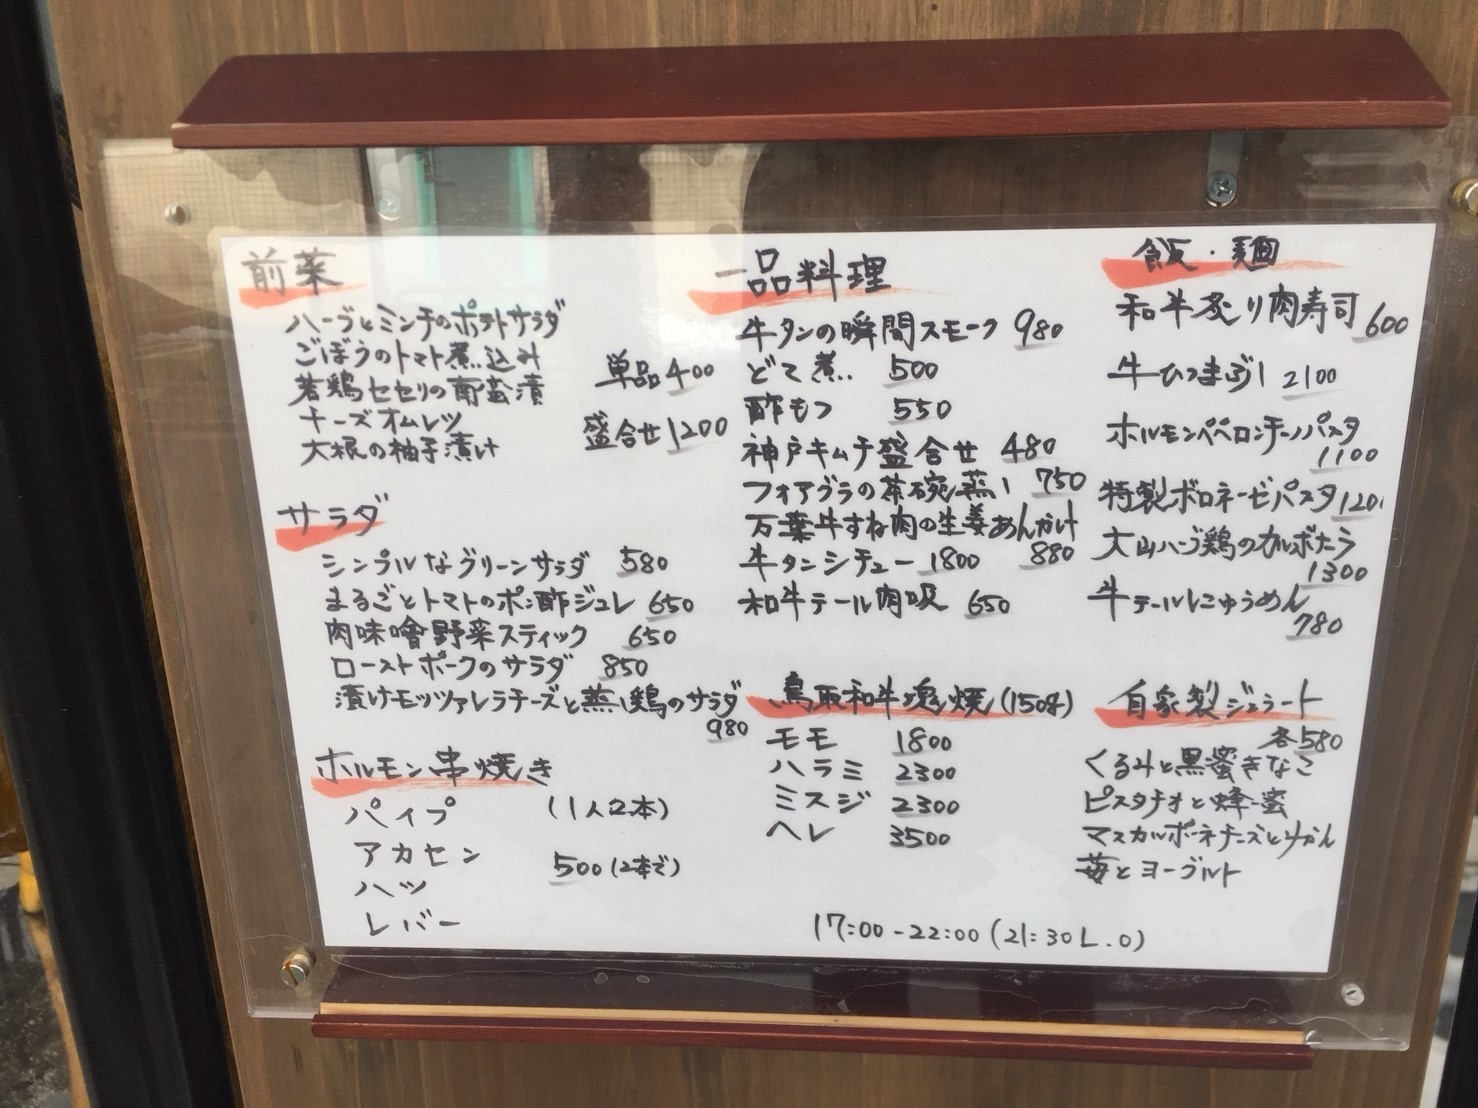 前菜
ハーブとミンチのポテトサラダ
ごぼうのトマト煮込み
若鶏セセリの南蛮漬
チーズオムレツ
大根の柚子漬け
単品400
盛合せ1200
サラダ
シンプルなグリーンサラダ 580
まるごとトマトのポン酢ジュレ 650
肉味噌野菜スティック 650
ローストポークのサラダ 850
漬けモッツァレラチーズと蒸し鶏のサラダ
980
ホルモン串焼き
パイプ (1人2本)
アカセン
500(2本で)
ハツ
レバー
一品料理
牛タンの瞬間スモーク 980
どて煮 500
酢もつ 550
神戸キムチ盛合せ 480
フォアグラの茶碗蒸し 750
万葉牛すね肉の生姜あんかけ
880
牛タンシチュー 1800
和牛テール肉吸 650
鳥取和牛塊焼(150g)
モモ 1800
ハラミ 2300
ミスジ 2300
ヘレ 3500
飯・麺
和牛炙り肉寿司 600
牛ひつまぶし 2100
ホルモンペペロンチーノパスタ
1100
特製ボロネーゼパスタ 120
大山ハーブ鶏のカルボナーラ
1300
牛テールにゅうめん
780
自家製ジェラート
各580
くるみと黒蜜きなこ
ピスタチオと蜂蜜
マスカルポーネチーズとみかん
苺とヨーグルト
17:00-22:00(21:30L.O)